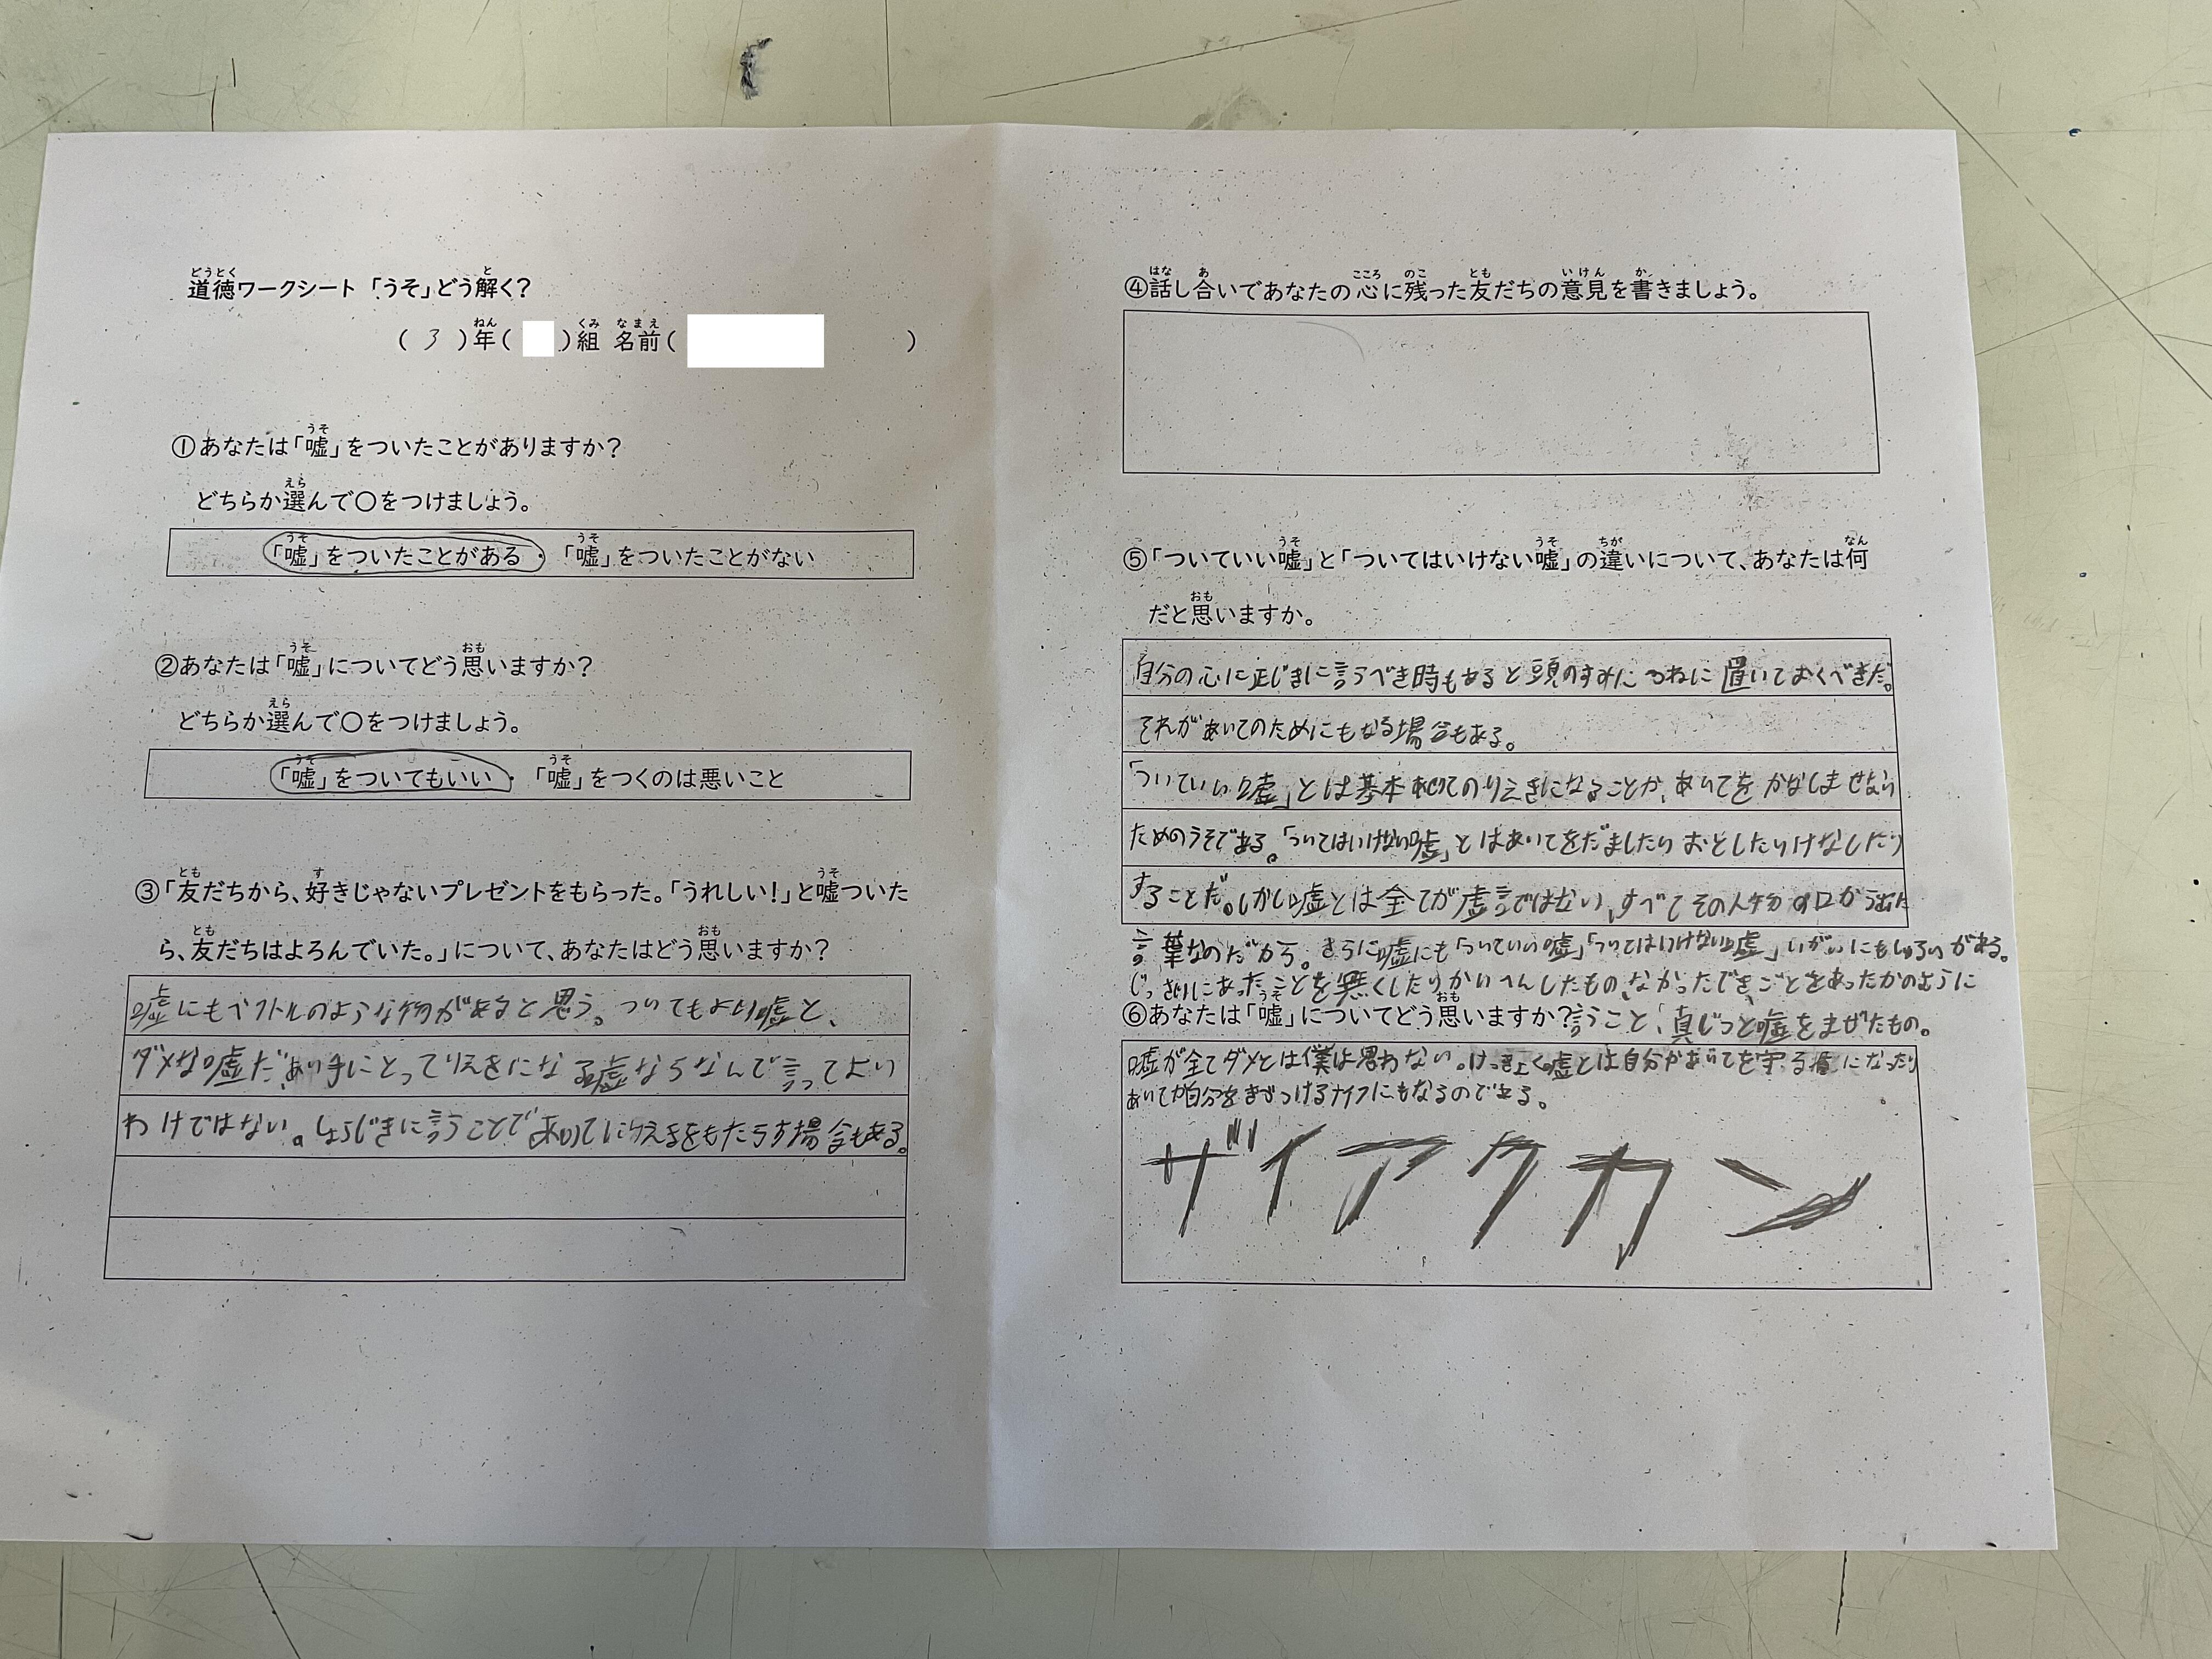 道徳ワークシート 「うそ」どう解く?
( 3 )年( )組 名前( )
①あなたは「嘘」をついたことがありますか?
どちらか選んで○をつけましょう。
「嘘」をついたことがある ・ 「嘘」をついたことがない
②あなたは「嘘」についてどう思いますか?
どちらか選んで○をつけましょう。
「嘘」をついてもいい ・ 「嘘」をつくのは悪いこと
③「友だちから、好きじゃないプレゼントをもらった。「うれしい!」と嘘ついた
ら、友だちはよろんでいた。」について、あなたはどう思いますか?
嘘にもベクトルのような物があると思う。ついてもよい嘘と、
ダメな嘘だ、あい手にとってりえきになる嘘ならなんで言ってよい
わけではない。しょうじきに言うことであいてにりえきをもたらす場合もある。
④話し合いであなたの心に残った友だちの意見を書きましょう。
⑤「ついていい嘘」と「ついてはいけない嘘」の違いについて、あなたは何
だと思いますか。
自分の心に正じきに言うべき時もあると頭のすみにつねに置いておくべきだ。
それがあいてのためにもなる場合もある。
「ついていい嘘」とは基本あいてのりえきになることか、あいてをかなしませない
ためのうそである。「ついてはいけない嘘」とはあいてをだましたりおとしたりけなしたり
することだ。しかし嘘とは全てが虚言ではない、すべてその人物の口から出た
言葉なのだから。さらに嘘にも「ついていい嘘」「ついてはいけない嘘」いがいにもしゅるいがある。
じっさいにあったことを無くしたりかいへんしたもの、なかったできごとをあったかのように
言うこと、真じつと嘘をまぜたもの。
⑥あなたは「嘘」についてどう思いますか?
嘘が全てダメとは僕は思わない。けっきょく嘘とは自分かあいてを守る盾になったり
あいてか自分をきずつけるナイフにもなるのである。
ザイアクカン